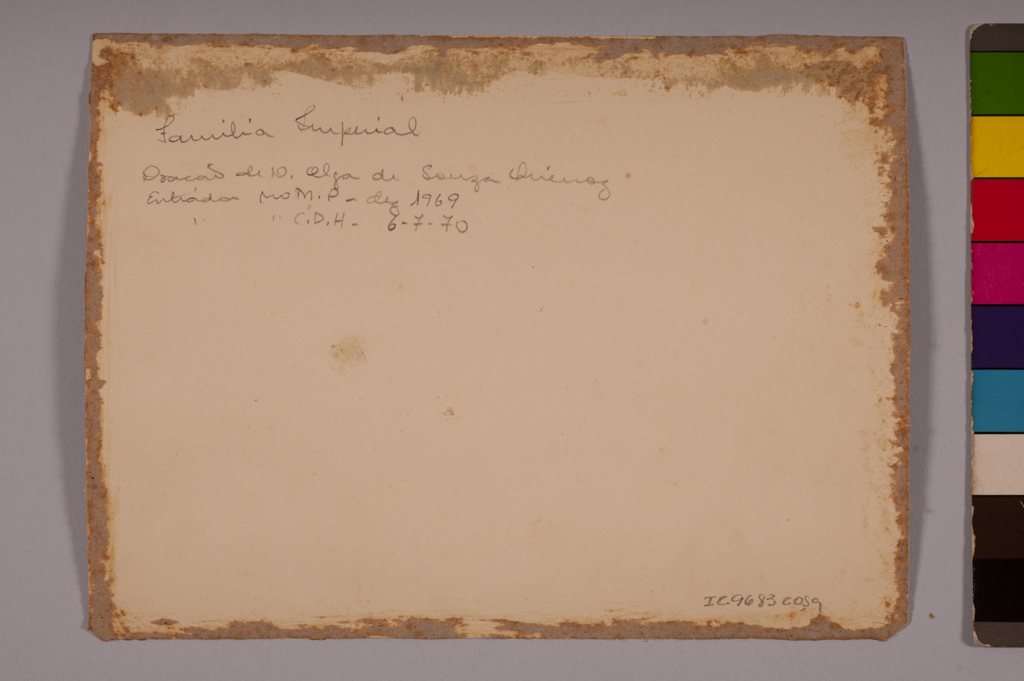 Familia Imperial
Doação de D. Olga de Souza Queiroz
Entrada no M.P - dez 1969
" " C.D.H - 6-7-70
IC9683 COSg